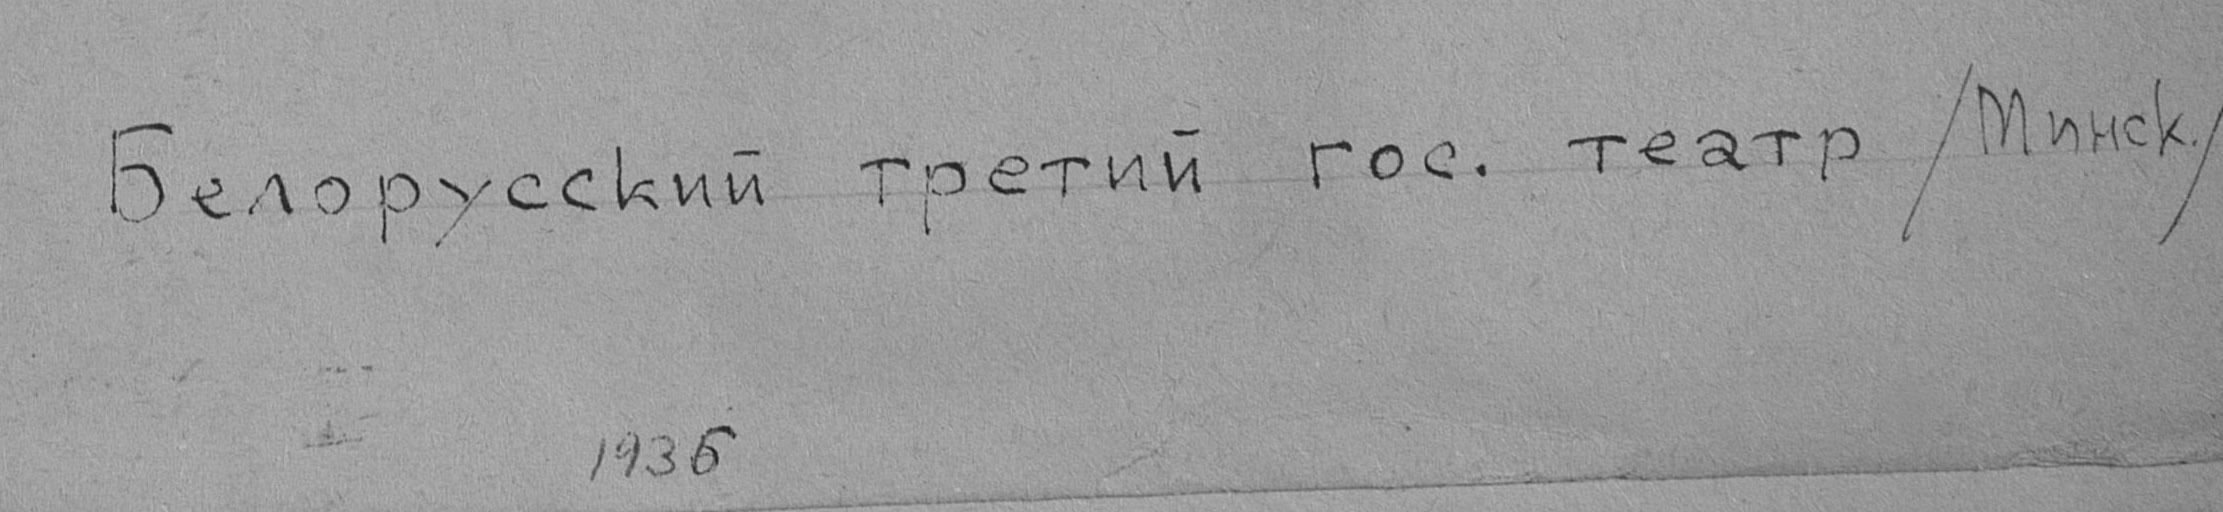 Белорусский третий гос. театр /Минск./
1936